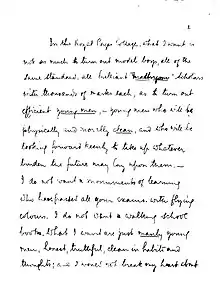 2
In the Royal Pages College, what I want is
not so much to turn out model boys, all of the
same standard, all brilliant scholars
with thousands of marks each, as to turn out
efficient young men, – young men who will be
physically and morally clean, and who will be
looking forward keenly to take up whatever
burden the future may lay upon them. –
I do not want monuments of learning
who have passed all your exams with flying
colours. I do not want a walking school
books. What I want are just manly young
men, honest, truthful, clean in habits and
thoughts; and I would not break my heart about